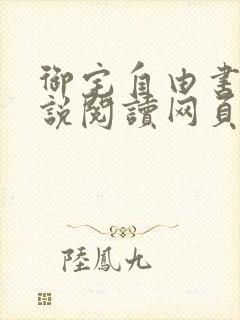 御宅自由書
說閱讀网頁
陸鳳九